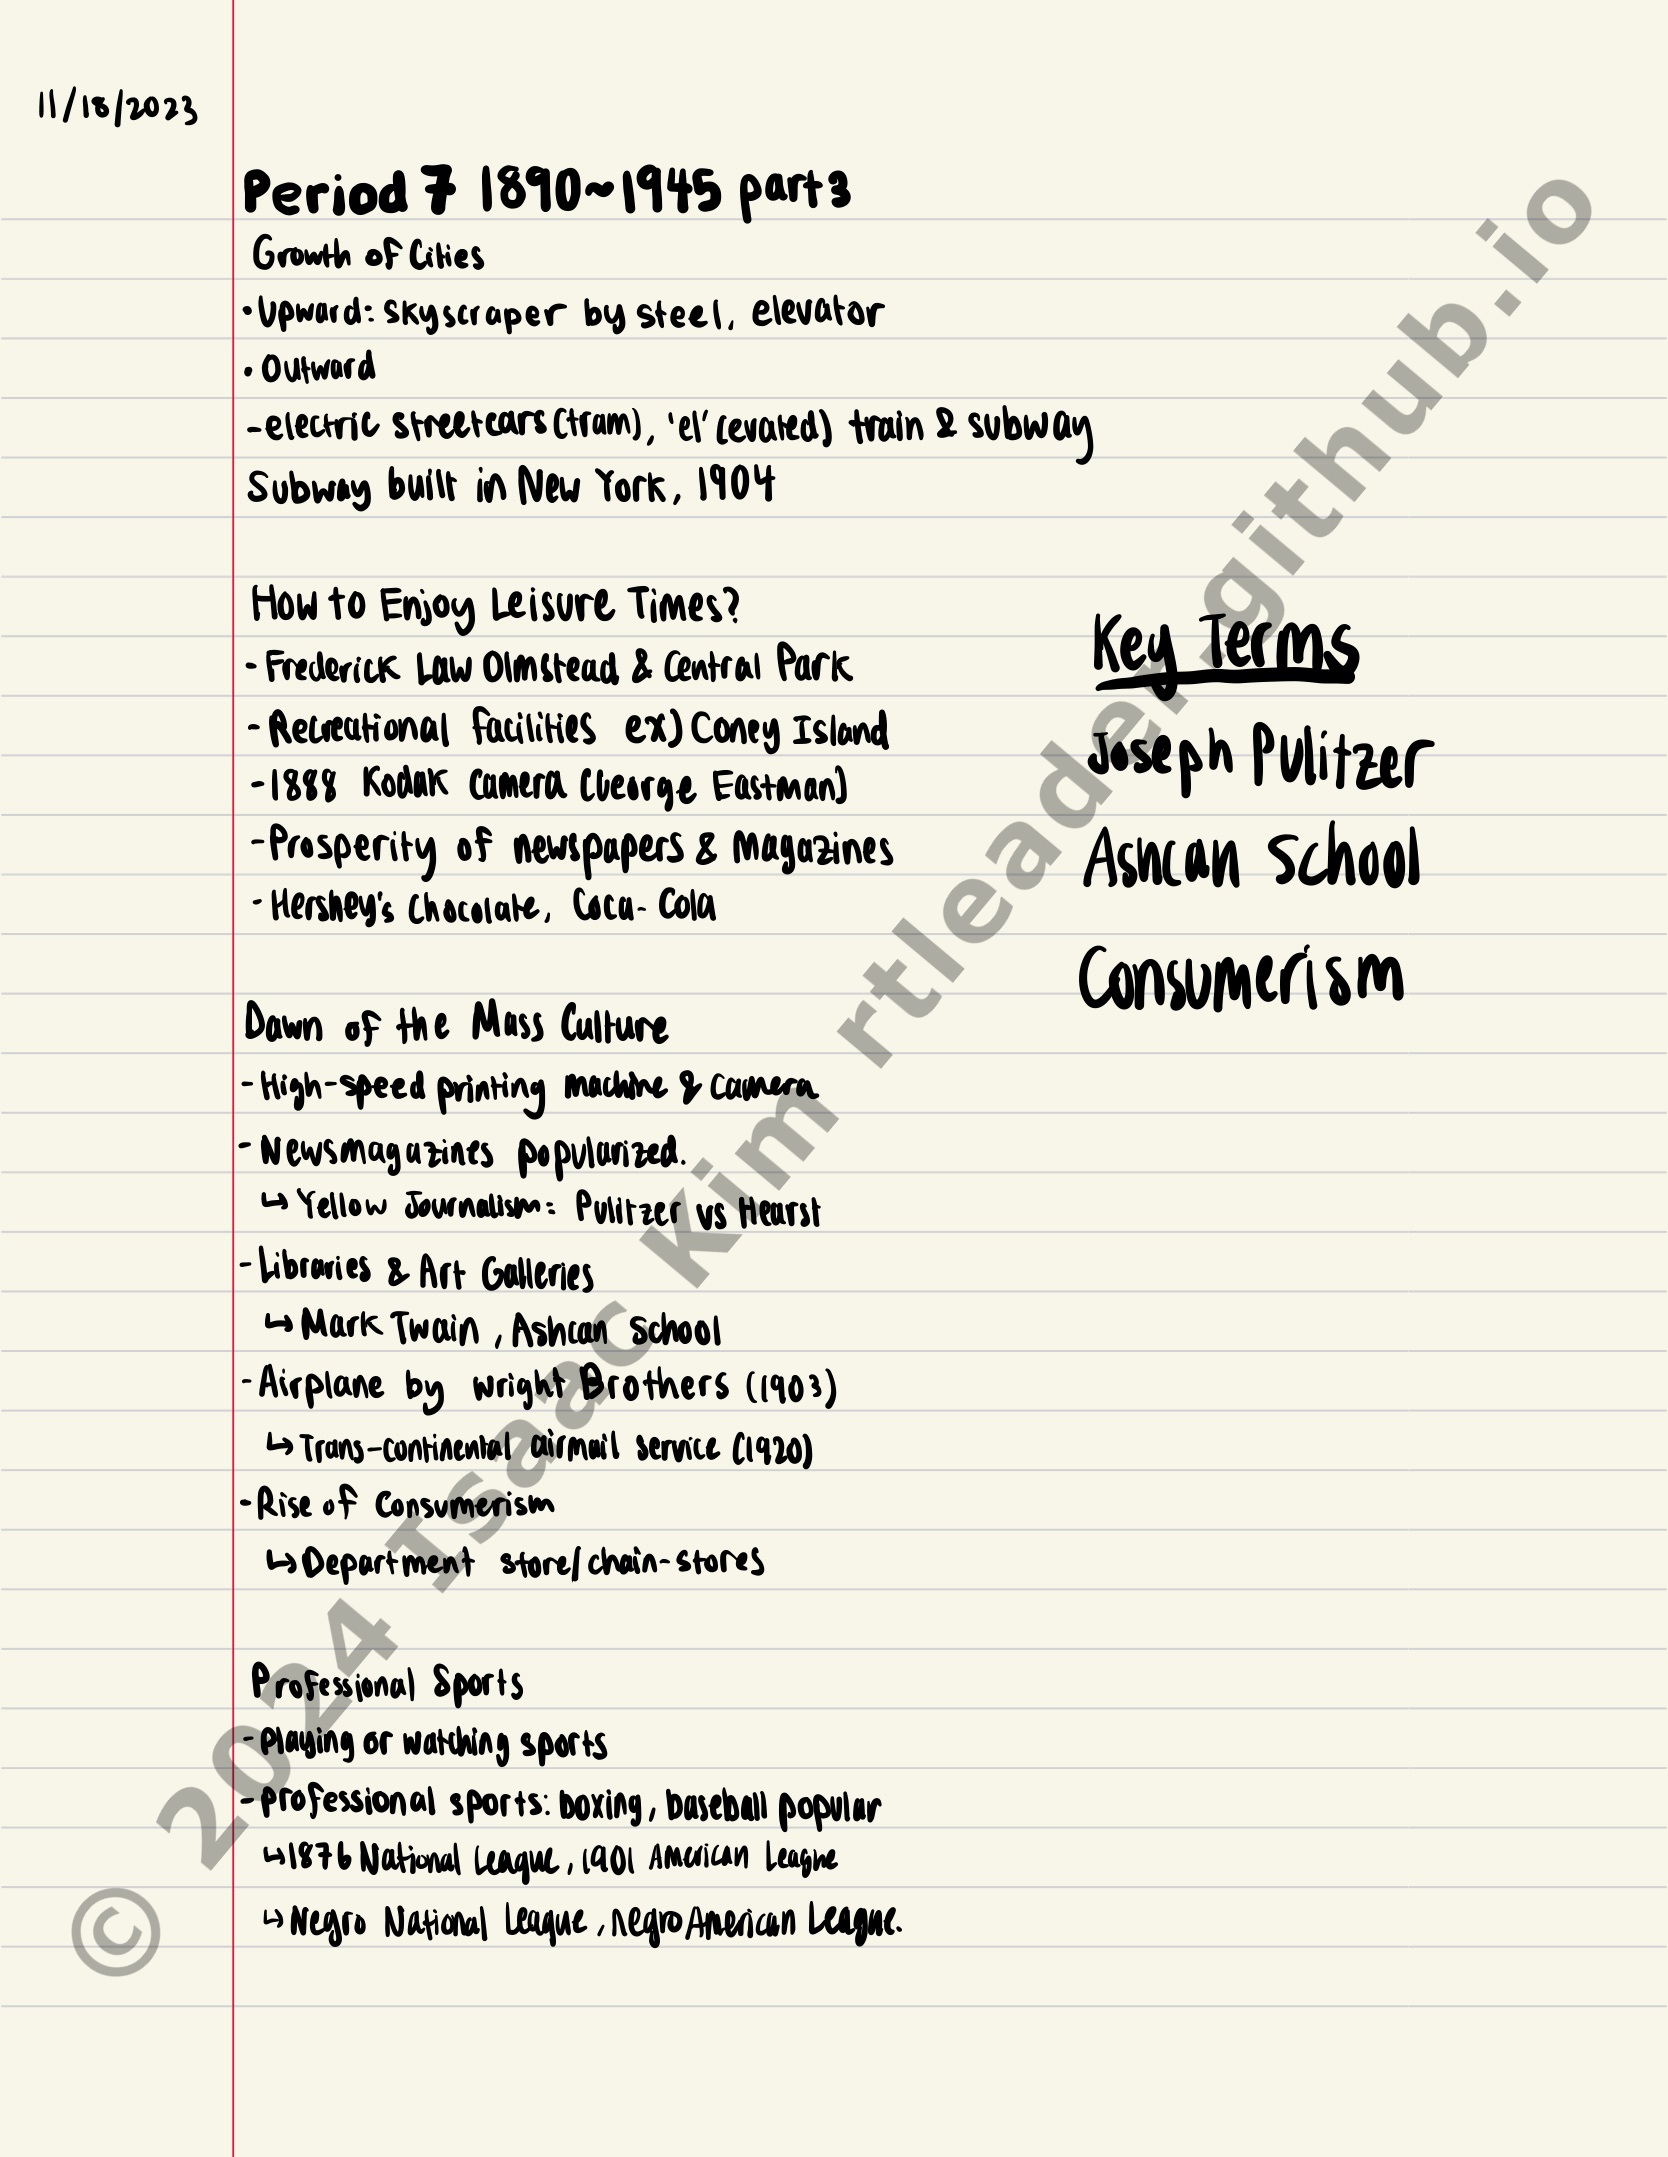 11/18/2023
Period 7 1890~1945 part3
Growth of Cities
• Upward: skyscraper by steel, elevator
• Outward
- electric streetcars (tram), 'el' (evated) train & subway
Subway built in New York, 1904
How to Enjoy Leisure Times?
- Frederick Law Olmstead & Central Park
- Recreational facilities ex) Coney Island
- 1888 Kodak Camera (George Eastman)
- Prosperity of newspapers & Magazines
- Hershey's Chocolate, Coca-Cola
Key Terms
Joseph Pulitzer
Ashcan School
Consumerism
Dawn of the Mass Culture
- High-speed printing machine & Camera
- Newsmagazines popularized.
↳ Yellow Journalism: Pulitzer vs Hearst
- Libraries & Art Galleries
↳ Mark Twain, Ashcan School
- Airplane by Wright Brothers (1903)
↳ Trans-continental airmail service (1920)
- Rise of Consumerism
↳ Department store/chain-stores
Professional Sports
- Playing or watching sports
- professional sports: boxing, baseball popular
↳ 1876 National League, 1901 American League
↳ Negro National League, negro American League.
© 2024 Isaac Kim rtleader.github.io